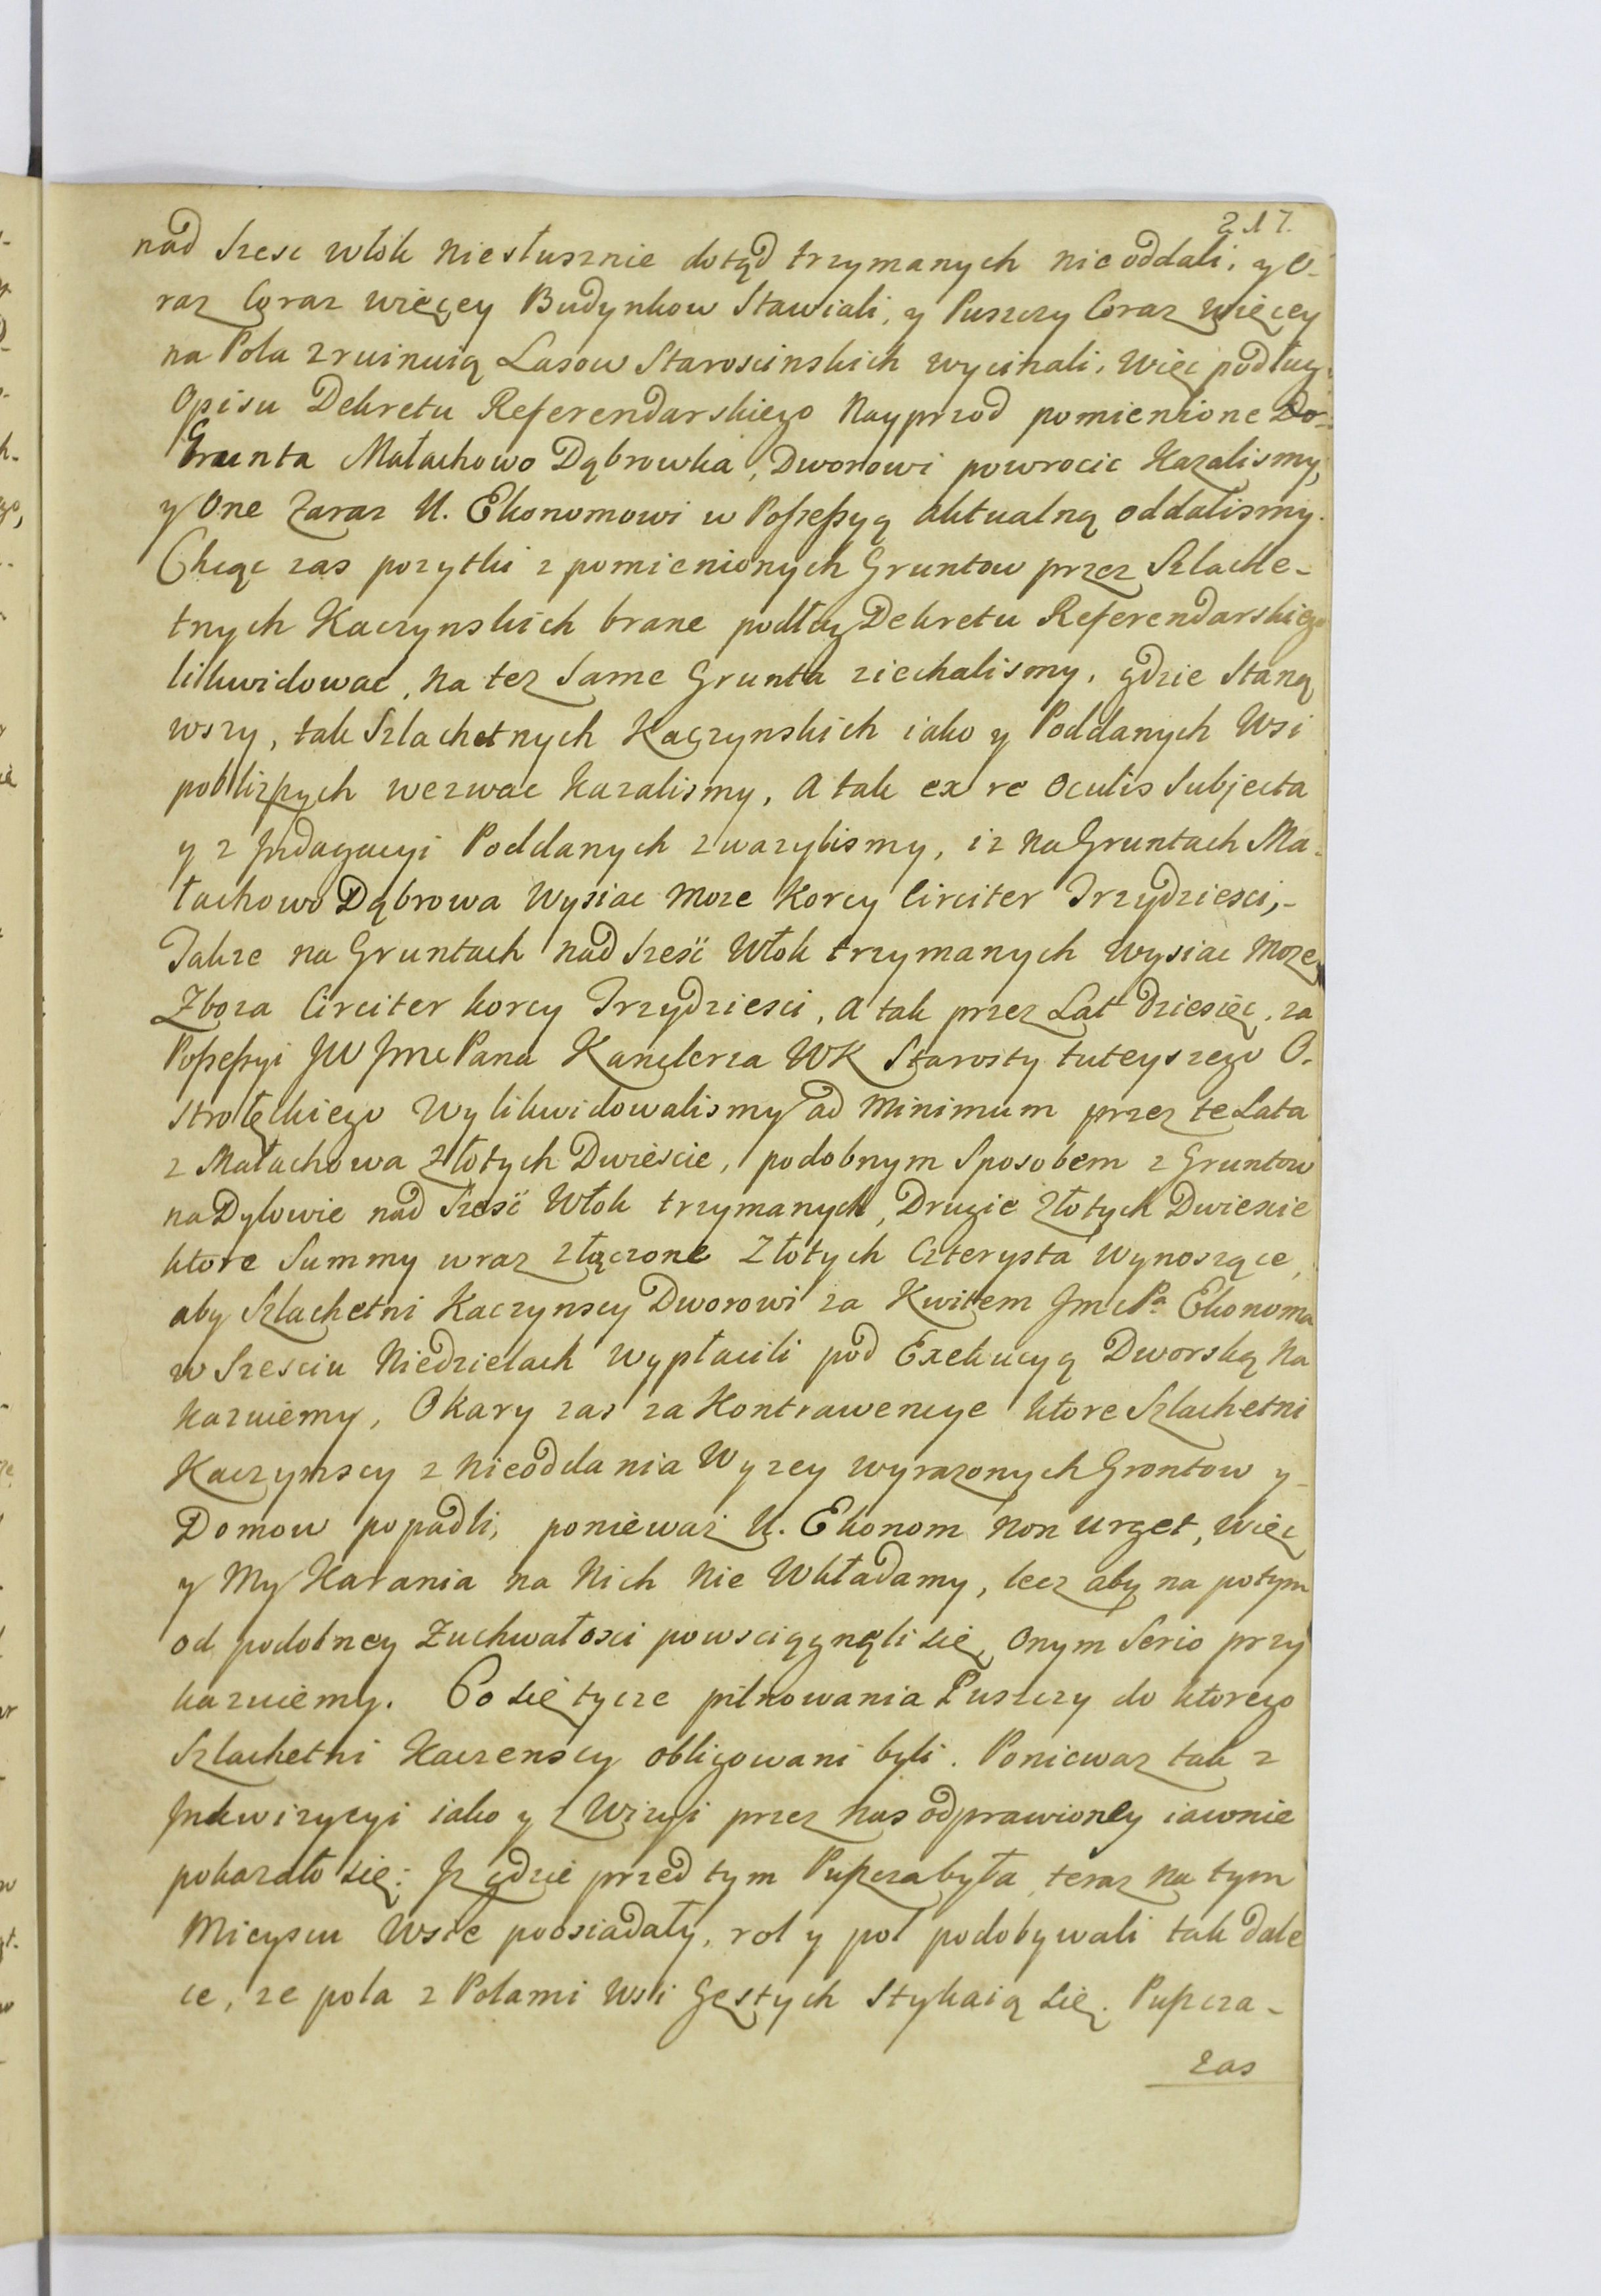 217.
nad szesc włok niesłusznie dotąd trzymanych nie oddali, y O-
raz Coraz więcey Budynkow Stawiali, y Puszczy Coraz więcey
na Pola z ruinuią Lasow Staroscinskich wycinali, Więc podług
Opisu Dekretu Referendarskiego Nayprzod pomienione Do-
Grunta Małachowo Dąbrowka, Dworowi powrocic Kazalismy,
y One Zaraz U. Ekonomowi w Possessyą aktualną oddalismy.
Chcąc zas pozytki z pomienionych Gruntow przez Szlache-
tnych Kaczynskich brane podług Dekretu Referendarskiego
likwidowac, na tez Same Grunta ziechalismy, gdzie Staną
wszy, tak Szlachetnych Kaczynskich iako y Poddanych Wsi
pobliższych wezwac Kazalismy, a tak ex re Oculis Subjecta
y z Jndagacyi Poddanych zwazylismy, iz na Gruntach Ma-
łachowo Dąbrowa Wysiac moze Korcy Circiter Trzydziesci,-
Takze na Gruntach nad szesć Włok trzymanych Wysiac Moze
Zboza Circiter korcy Trzydziesci, a tak przez Lat dziesięc, za
Possessyi JW Jmc Pana Kanclerza WK Starosty tuteyszego O-
strołęckiego Wylikwidowalismy ad minimum przez te Lata
z Małachowa Złotych Dwieście, podobnym Sposobem z Gruntow
na Dylowie nad szesć Włok trzymanych, Drugie złotych Dwiescie
ktore Summy wraz złączone Złotych Czterysta Wynoszące,
aby Szlachetni Kaczynscy Dworowi za Kwitem Jmc Pa Ekonoma
w Szesciu Niedzielach wypłacili pod Exekucyą Dworską Na
kazuiemy, O kary zas za Kontrawencye ktore Szlachetni
Kaczynscy z nieoddania Wyzey wyrazonych Grontow y-
Domow popadli, poniewaz U. Ekonom non urget, Więc
y My Karania na Nich nie Wkładamy, lecz aby na potym
od podobney Zuchwałosci powsciągnęli się, Onym Serio przy
kazuiemy. Co się tycze pilnowania Puszczy do ktorego
Szlachetni Kaczenscy obligowani byli. Poniewaz tak z
Jnkwizycyi iako y z Wizyi przez nas odprawioney iawnie
pokazało się: Jz gdzie przed tym Puszcza była, teraz na tym
Mieyscu Wsie poosiadały, rol y pol podobywali tak dale
ce, ze pola z Polami Wsi Gęstych Stykaią się. Puszcza-
zas